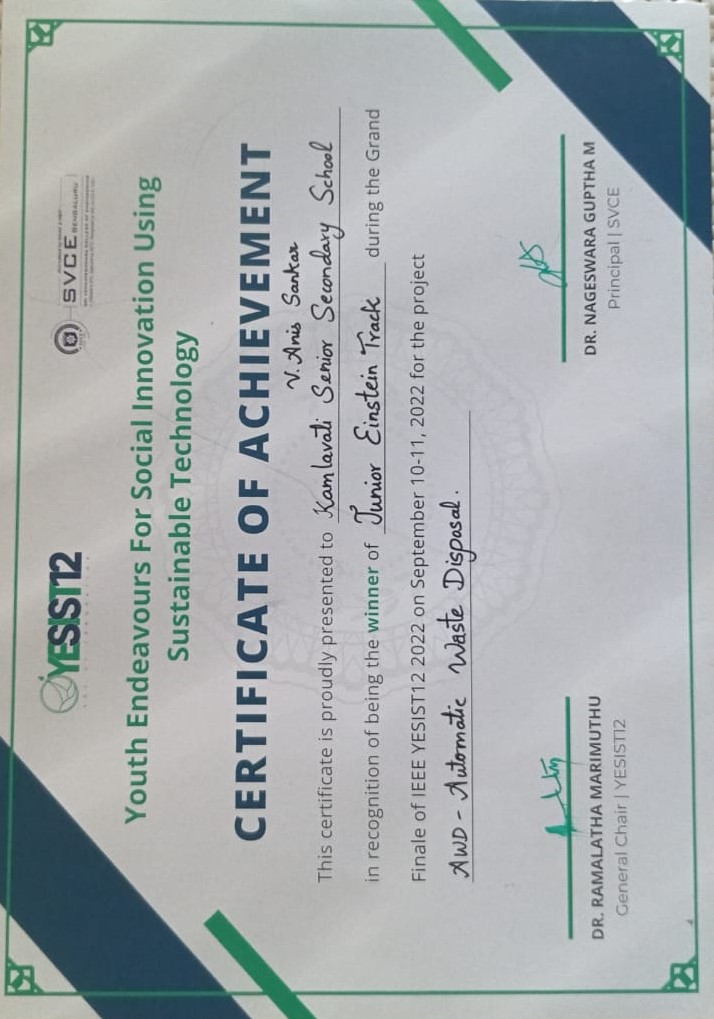 YESIST12
SVCE BENGALURU
Youth Endeavours For Social Innovation Using
Sustainable Technology
CERTIFICATE OF ACHIEVEMENT
V. Anis Sankar
This certificate is proudly presented to Kamlavati Senior Secondary School
in recognition of being the winner of Junior Einstein Track during the Grand
Finale of IEEE YESIST12 2022 on September 10-11, 2022 for the project
AWD - Automatic Waste Disposal.
DR. RAMALATHA MARIMUTHU
General Chair | YESIST12
DR. NAGESWARA GUPTHA M
Principal | SVCE